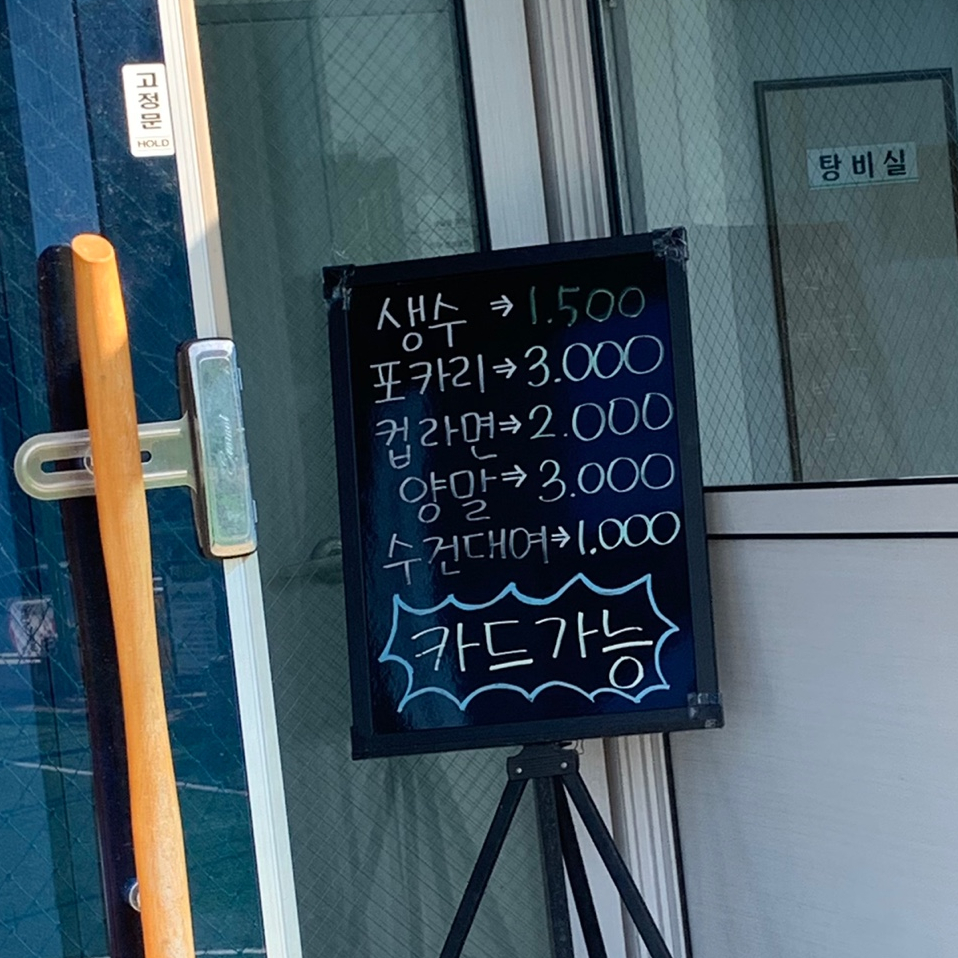 고정문
HOLD
탕비실
생수 ⇒ 1.500
포카리 ⇒ 3.000
컵라면 ⇒ 2.000
양말 ⇒ 3.000
수건대여 ⇒ 1.000
카드가능